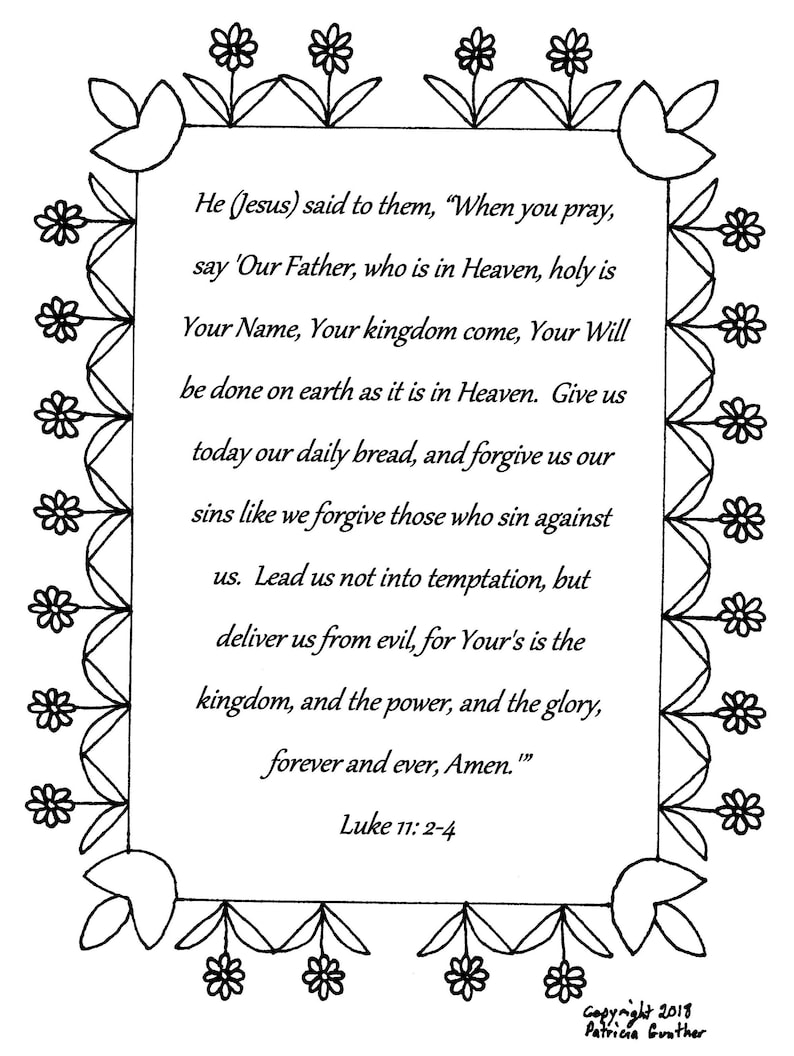 He (Jesus) said to them, “When you pray,
say 'Our Father, who is in Heaven, holy is
Your Name, Your kingdom come, Your Will
be done on earth as it is in Heaven.  Give us
today our daily bread, and forgive us our
sins like we forgive those who sin against
us.  Lead us not into temptation, but
deliver us from evil, for Your's is the
kingdom, and the power, and the glory,
forever and ever, Amen.'”
Luke 11: 2-4
Copyright 2018
Patricia Gunther